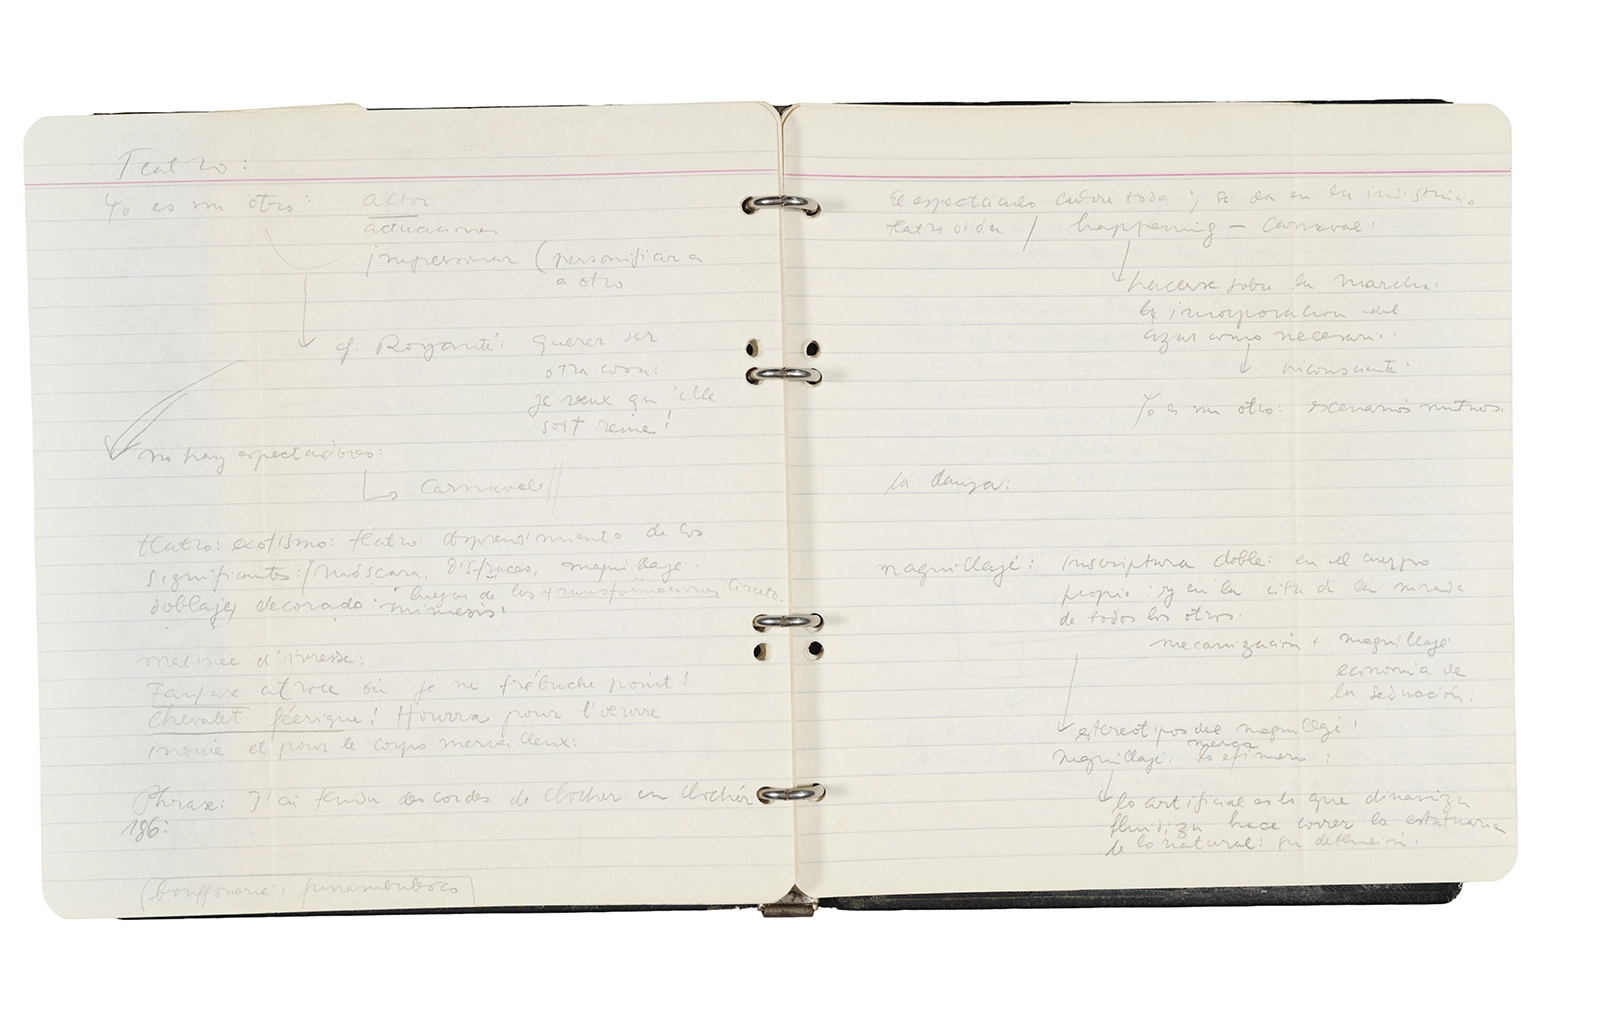 Teatro:
Yo es un otro: actor
actuaciones
impersonar (personificar a
a otro
cf. Royauté: querer ser
otra cosa:
je veux qu'elle
soit reine!
no hay espectadores:
Carnaval
teatro: exotismo: teatro: desprendimiento de los
significantes: / máscara, disfraces, maquillaje.
lugar de las transformaciones.
doblaje, decorado: mimesis.
matinée d'ivresse:
Fanfare atroce où je ne trébuche point!
Chevalet féerique! Hourra pour l'œuvre
inouïe et pour le corps merveilleux:
Phrase: J'ai tendu des cordes de clocher en clocher
186:
(bouffonerie: funambulesco)
El espectáculo cubre todo; se da en la indistinción
teatro vida / happening - Carnaval:
hacerse sobre la marcha.
la incorporacion del
azar como necesari..
inconsciente.
Yo es un otro: escenarios mutuos.
la danza:
maquillaje: Inscriptura doble: en el cuerpo
propio: y en la cita de la mirada
de todos los otros.
mecanización: maquillaje
economía de
la seducción:
estereotipos del maquillaje:
marca
maquillaje: lo efímero:
lo artificial es lo que dinamiza
fluidiza hace correr la estatuaria
de lo natural: su detención.